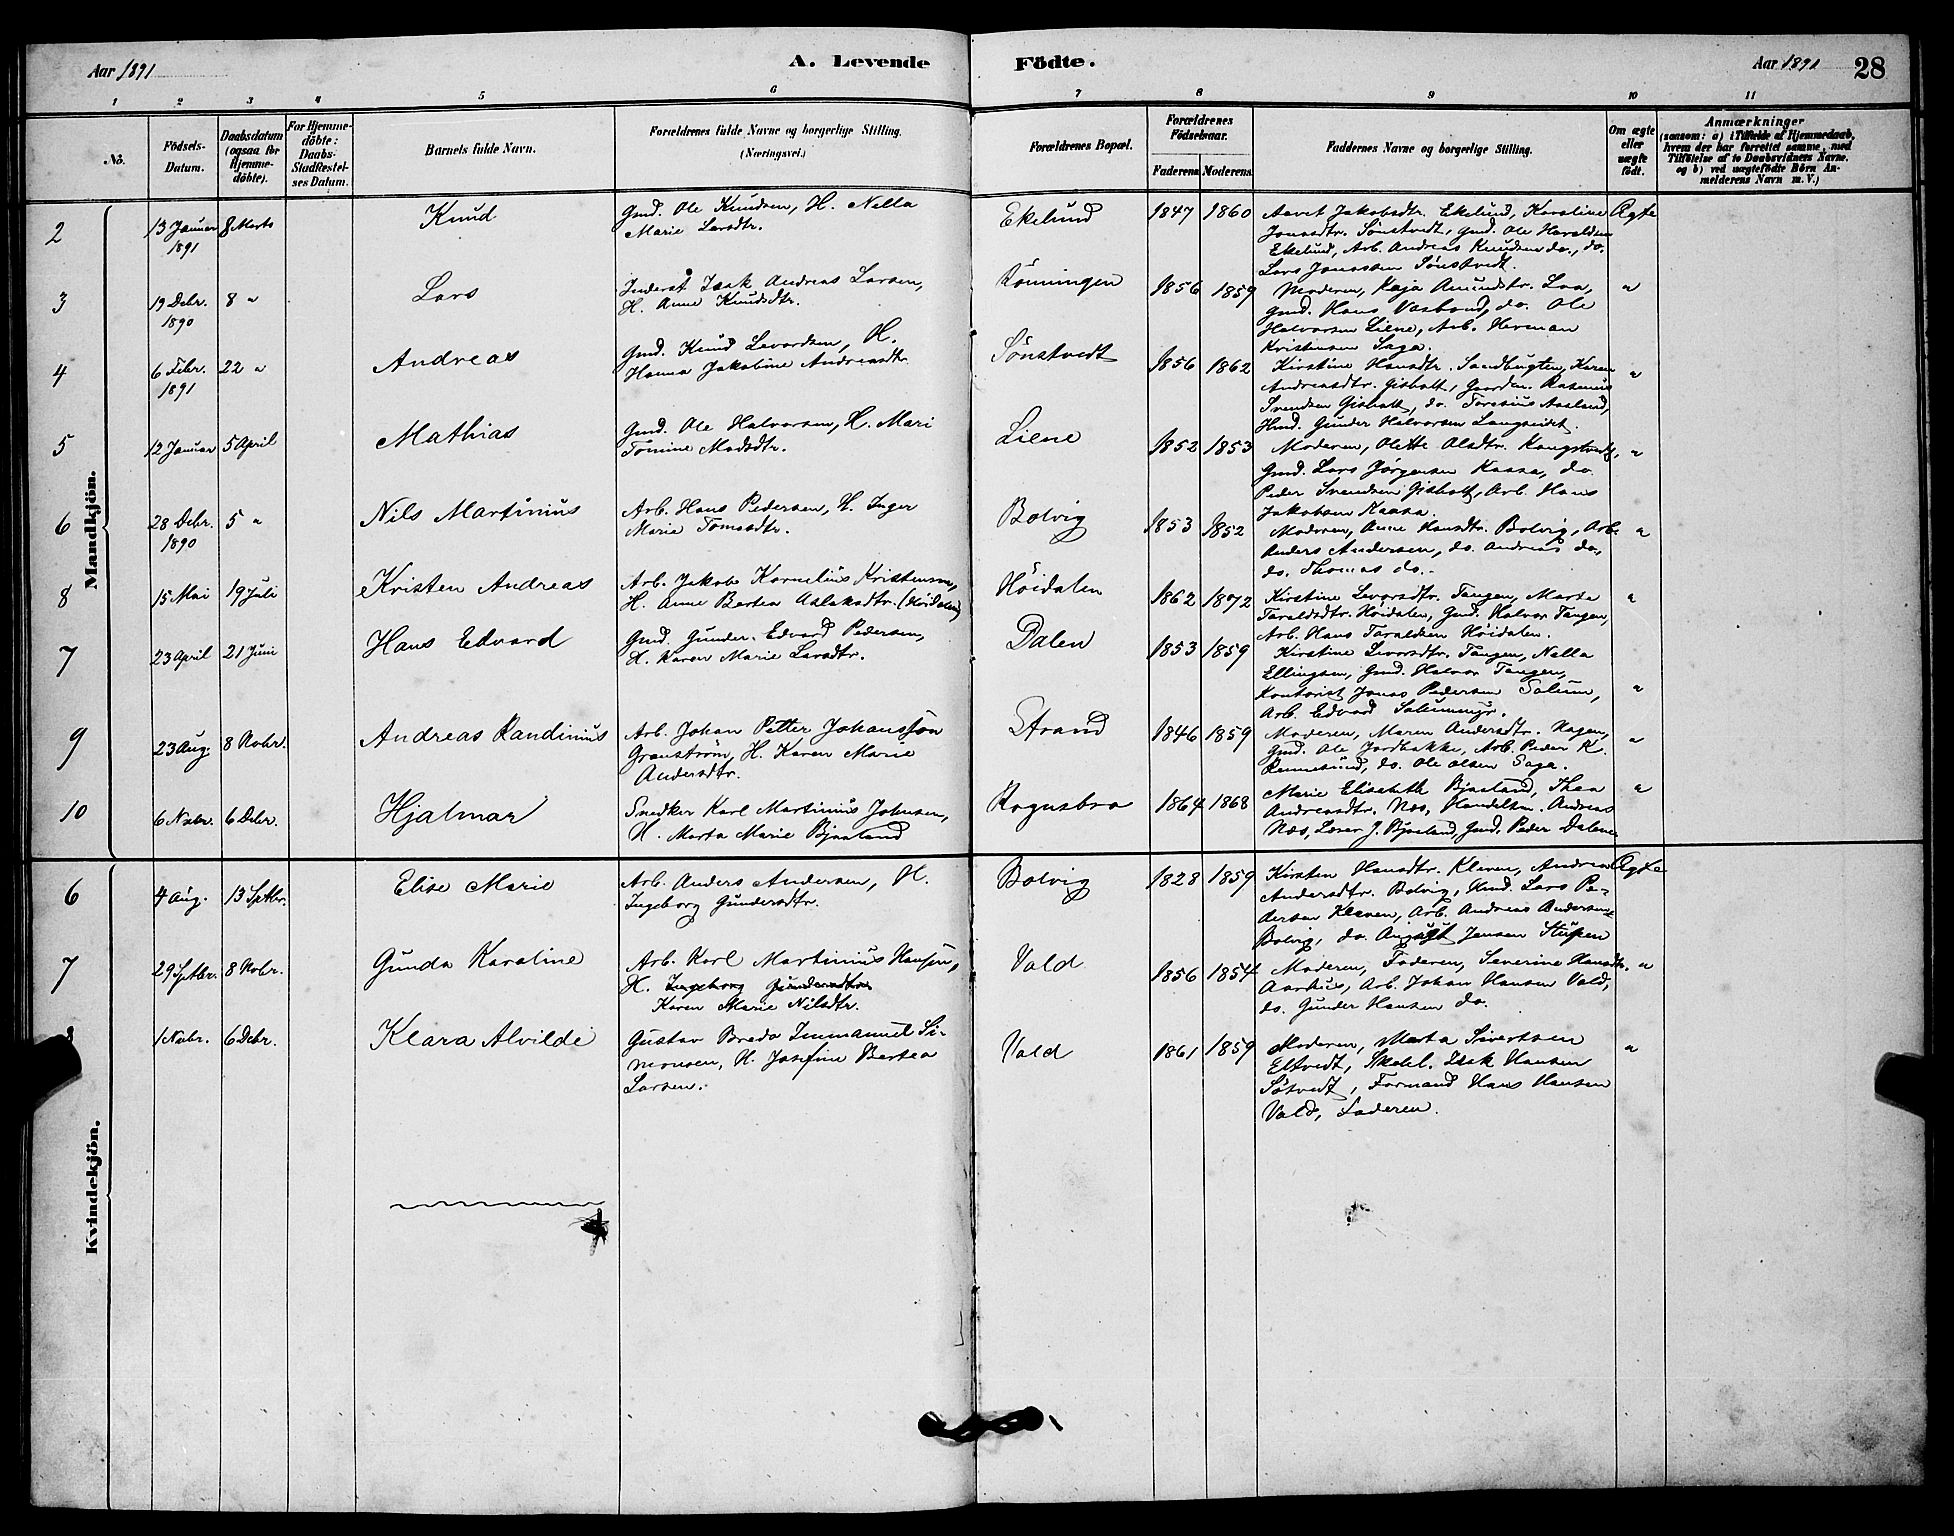 Aar 1891
A. Levende
Födte.
Aar 1891
28
1 2 3 4 5 6 7 8 9 10 11
No.
Födsels-Datum.
Daabsdatum (ogsaa for Hjemme-döbte).
For Hjemme-döbte: Daabs-Stadfæstel-ses Datum.
Barnets fulde Navn.
Forældrenes fulde Navne og borgerlige Stilling. (Næringsvei.)
Forældrenes Bopæl.
Forældrenes Födselsaar.
Faderens Moderens
Faddernes Navne og borgerlige Stilling.
Om ægte eller uægte födt.
Anmærkninger
(saasom: a) i Tilfælde af Hjemmedaab, hvem der har forrettet samme, med Tilföielse af to Daabsvidners Navne, og b) ved uægtefödte Börn Anmelderens Navn m. V.)
Mandkjön.
2
13 Januar 1891
8 Marts
Knud
Gmd. Ole Knudsen, H. Nella
Marie Larsdtr.
Ekelund
1847 1860
Aaret Jakobsdtr. Ekelund, Karoline
Jonasdtr. Sønstvedt, Gmd. Ole Haraldsen
Ekelund, Arb. Andreas Knudsen do., do.
Lars Jonassen Sønstvedt.
Ægte
3
19 Debr. 1890
8 "
Lars
Inderst Isak Andreas Larsen,
H. Anne Knudsdtr.
Rønningen
1856 1859
Moderen, Kaja Amundsdtr. Laa,
Gmd. Hans Vasbund, do. Ole
Halvorsen Liene, Arb. Herman
Kristensen Saga.
"
4
6 Febr. 1891
22 "
Andreas
Gmd. Knud Levordsen, H.
Hanna Jakobine Andreasdtr
Sønstvedt
1856 1862
Kirstine Hansdtr. Sandbugten, Karen
Andreasdtr. Gisholt, Gaardm. Rasmus
Svendsen Gisholt, do. Toresius Aasland,
Hmd. Gunder Halvorsen Langseidet.
"
5
12 Januar
5 April
Mathias
Gmd. Ole Halvorsen, H. Mari
Tomine Madsdtr.
Liene
1852 1853
Moderen, Olette Olsdtr. Kongstvedt,
Gmd. Lars Jørgensen Kaasa, do.
Peder Svendsen Gisholt, Arb. Hans
Jakobsen Kaasa.
"
6
28 Debr. 1890
5 "
Nils Martinius
Arb. Hans Pedersen, H. Inger
Marie Tomasdtr.
Bolvig
1853 1852
Moderen, Anne Hansdtr. Bolvig, Arb.
Anders Andersen, do. Andreas do,
do. Thomas do.
"
8
15 Mai
19 Juli
Kristen Andreas
Arb. Jakob Kornelius Kristensen,
H. Anne Bertea Aslaksdtr. (Høidalen)
Høidalen
1862 1872
Kirstine Levorsdtr. Tangen, Marta
Taraldsdtr. Høidalen, Gmd. Halvor Tangen,
Arb. Hans Taraldsen Høidalen.
"
7
23 April
21 Juni
Hans Edvard
Gmd. Gunder Edvard Pedersen,
H. Karen Marie Larsdtr.
Dalen
1853 1859
Kirstine Levorsdtr. Tangen, Nella
Ellingsen, Gmd. Halvor Tangen,
Kontorist Jonas Pedersen Solum,
Arb. Edvard Solummyr.
"
9
23 Aug.
8 Novbr.
Andreas Randinius
Arb. Johan Petter Johansson
Granström, H. Karen Marie
Andersdtr.
Strand
1846 1859
Moderen, Maren Andersdtr. Hagen,
Gmd. Ole Jordbakke, Arb. Peder K.
Rennesund, do. Ole Olsen Saga.
"
10
6 Novbr.
6 Debr.
Hjalmar
Snedker Karl Martinius Johnsen,
H. Marta Marie Bjaaland
Rognsbro
1864 1868
Marie Elisabeth Bjaaland, Thea
Andreasdtr. Næs, Handelsm. Andreas
Næs, Lærer J. Bjaaland, Gmd. Peder Dalene
"
Kvindekjön.
6
4 Aug.
13 Septbr.
Elise Marie
Arb. Anders Andersen, H.
Ingeborg Gundersdtr.
Bolvig
1828 1859
Kirsten Hansdtr. Kleven, Andrea
Andersdtr. Bolvig, Hmd. Lars Pe-
dersen Kleven, Arb. Andreas Andersen
Bolvig, do. August Jensen Stupen
Ægte
7
29 Septbr.
8 Novbr.
Gunda Karoline
Arb. Karl Martinius Hansen,
H. Ingeborg Gundersdtr
Karen Marie Nilsdtr.
Vold
1856 1854
Moderen, Faderen, Severine Hansdtr.
Aarhus, Arb. Johan Hansen Vold,
do. Gunder Hansen do.
"
8
1 Novbr.
6 Debr.
Klara Alvilde
Gustav Bredo Immanuel Si-
monsen, H. Josefine Bertea
Larsen.
Vold
1861 1859
Moderen, Marta Sivertsen
Eltvedt, Isak Hansen
Søtvedt, Formand Hans Hansen
Vold, Faderen.
"